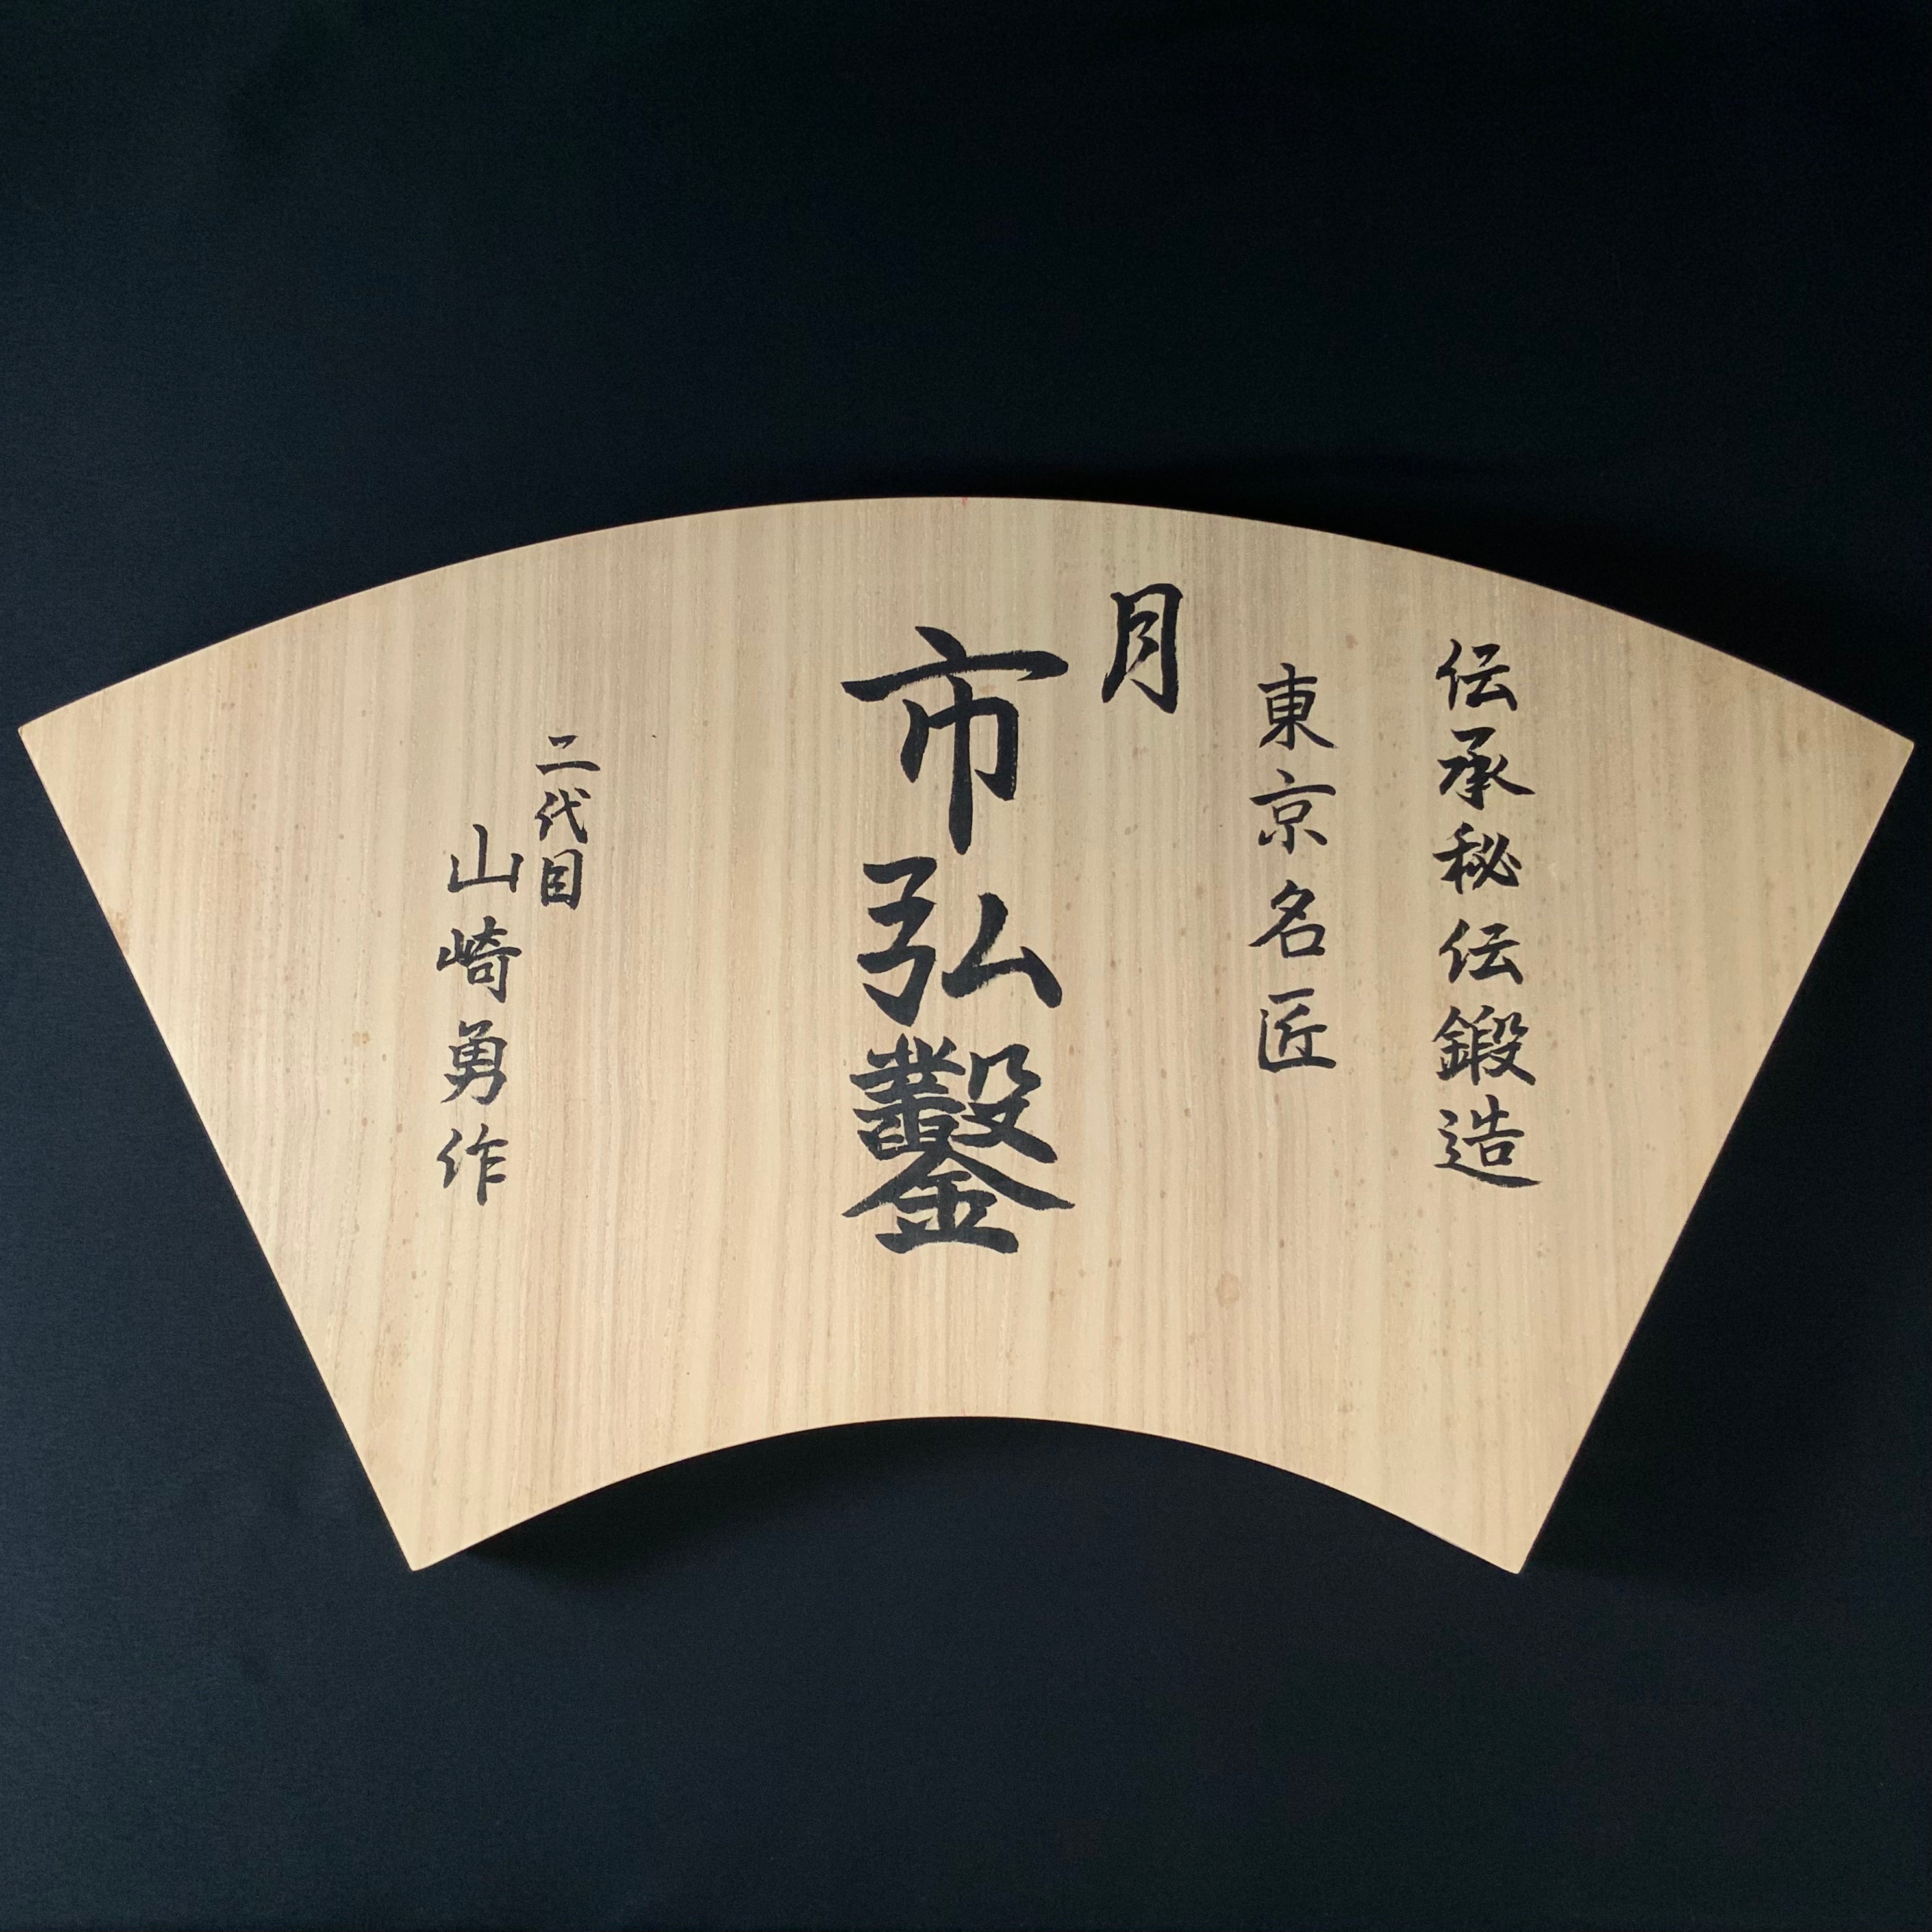 伝承秘伝鍛造
東京名匠
月
市弘鑿
二代目
山崎勇作